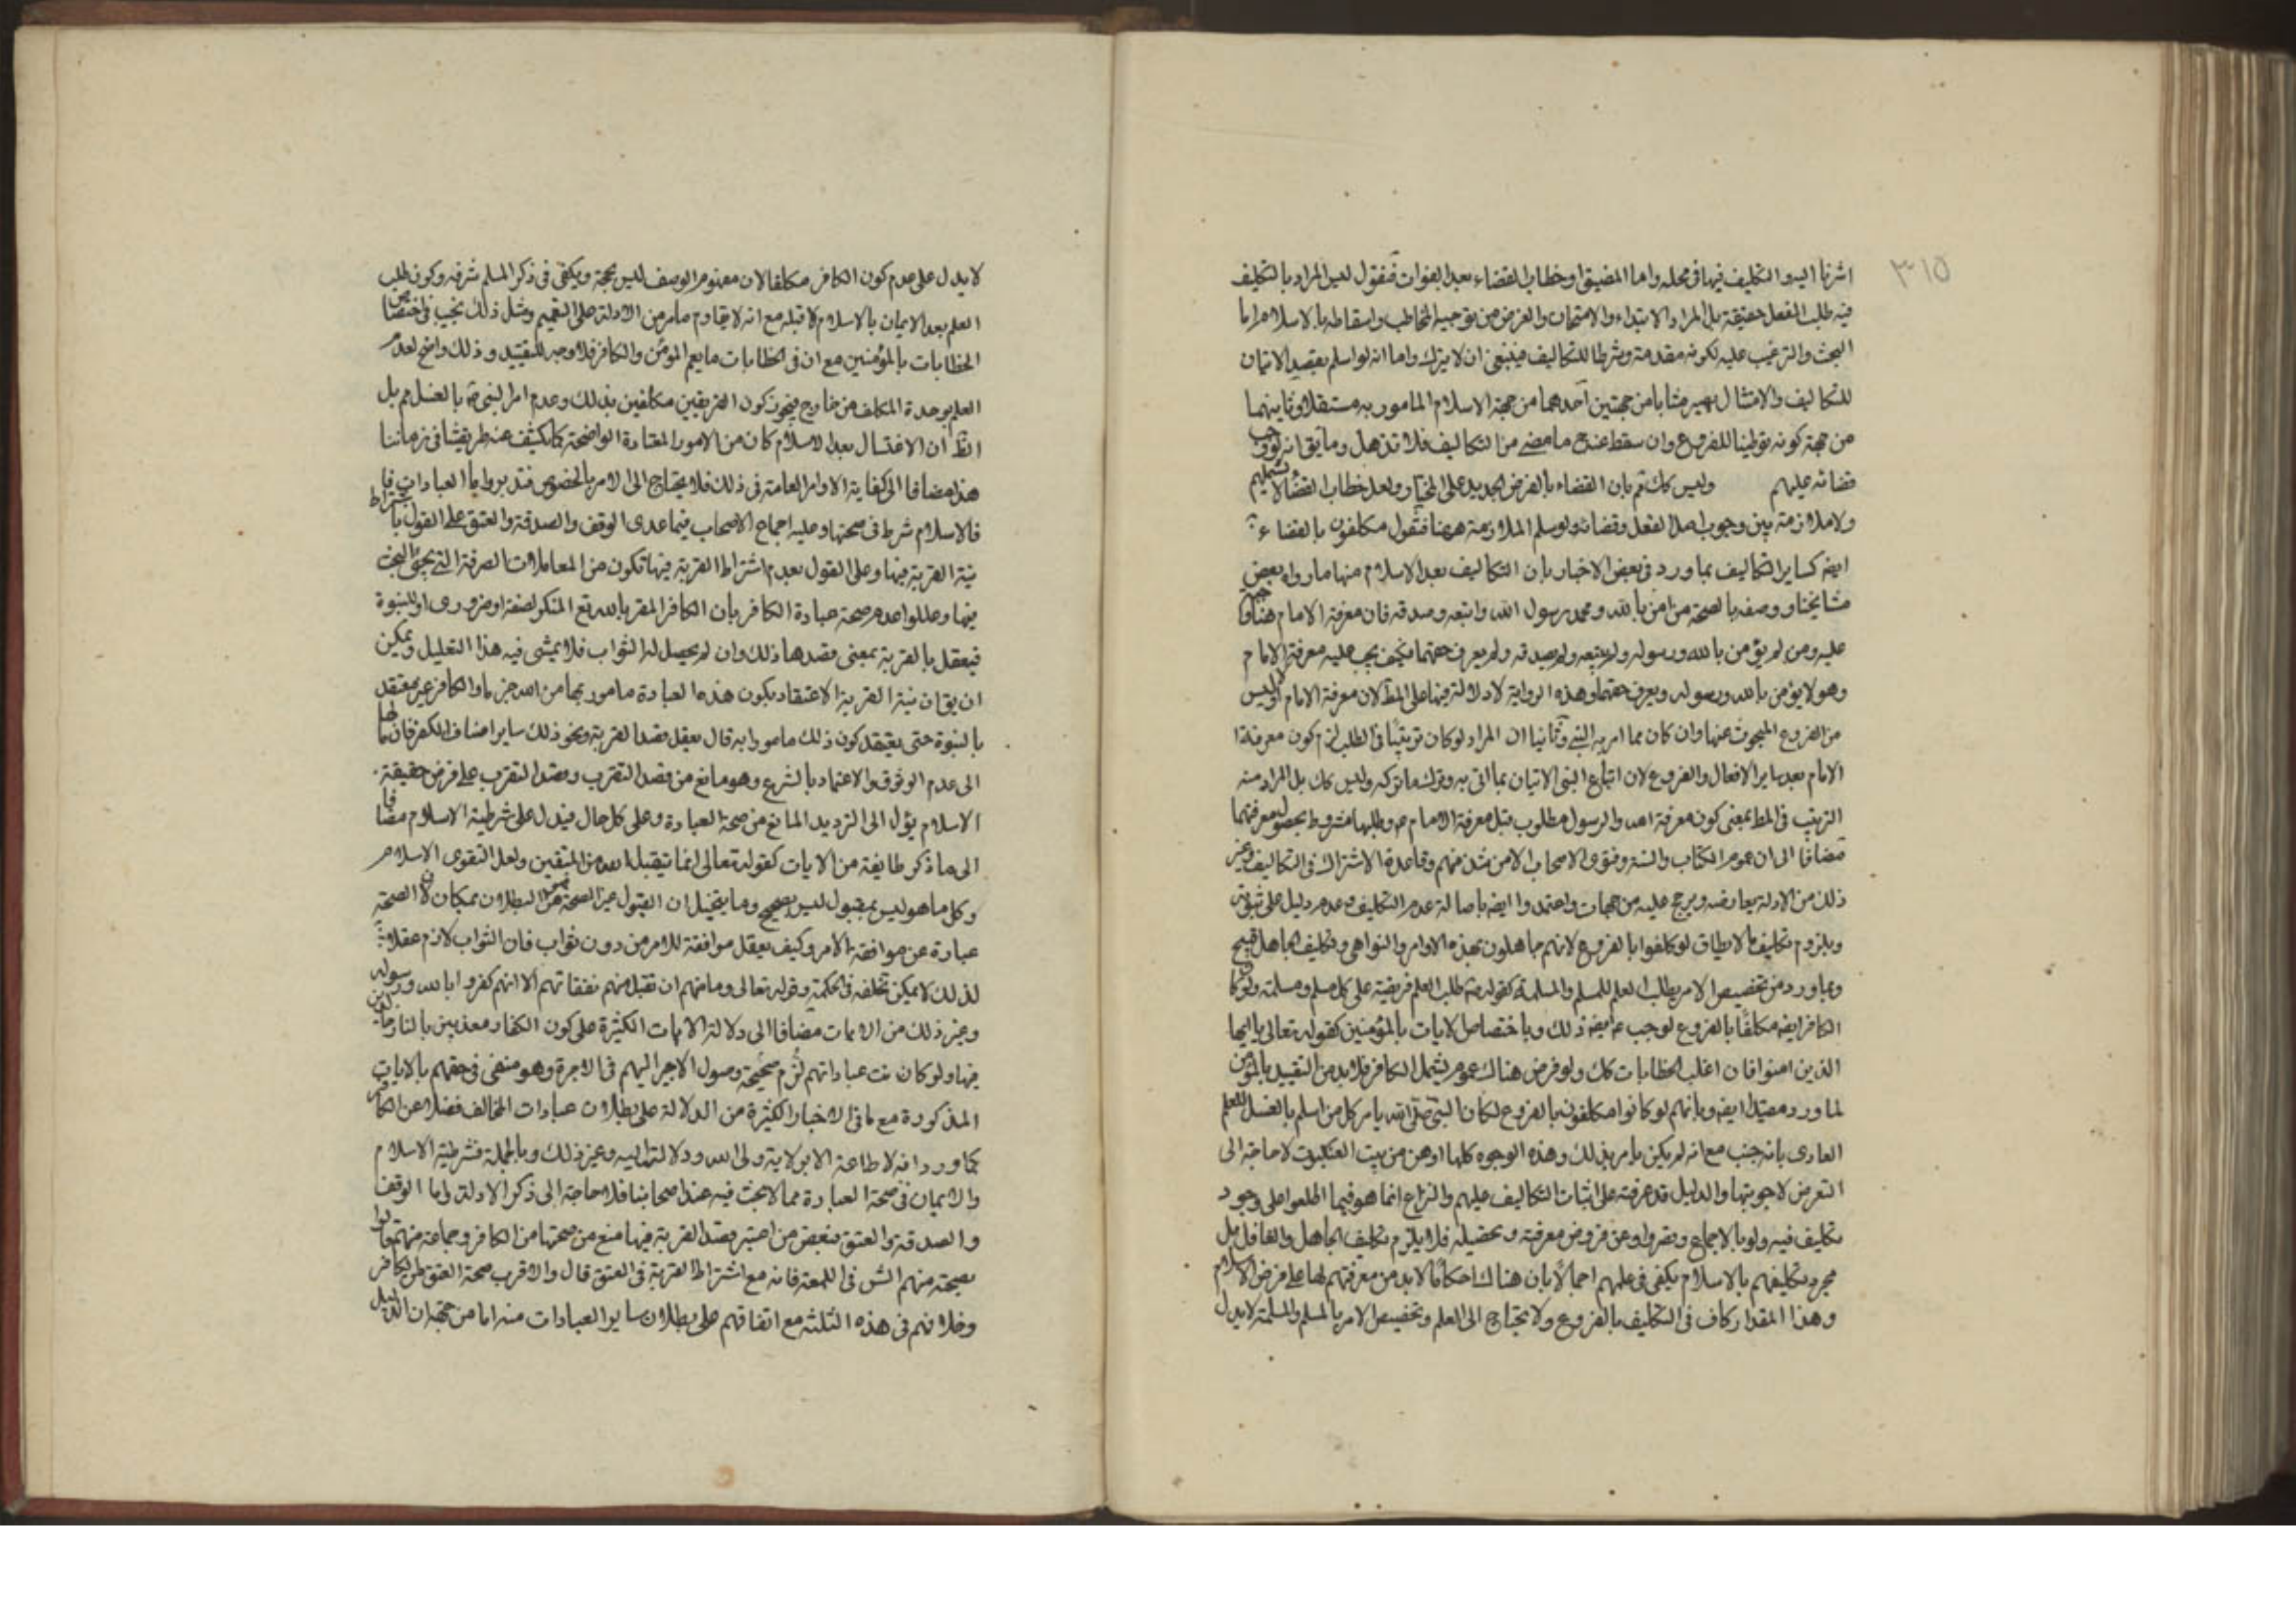 ٣١٥
اشرنا اليه والتكليف فيها في محله واما المضيق او خطاب القضاء بعد الفوات فنقول ليس المراد بالتكليف
فيه طلب الفعل حقيقة بل المراد الابتلاء والامتحان والغرض من توجيه المخاطب واسقاطه بالاسلام اما
البحث والترغيب عليه لكونه مقدمة وشرطا للتكاليف فينبغي ان لا يترك واما انه لو اسلم بقصد الاتيان
للتكاليف والامتثال يصير مثابا من جهتين احدهما من جهة الاسلام المامور به مستقلا وثانيهما
من جهة كونه توطينا للفروع وان سقط عنه ما مضى من التكاليف فلا تذهل وما يق انه لو وجب
قضائه عليهم وليس كك ثم بان القضاء بالفرض الجديد على المختار ولعل خطاب القضاء لا يشملهم
ولا ملازمة بين وجوب اصل الفعل وقضائه ولو سلم الملازمة ههنا فنقول مكلفون بالقضاء
ايضه كساير التكاليف بما ورد في بعض الاخبار بان التكاليف بعد الاسلام منها ما رواه بعض
مشايخنا ووصفه بالصحة من امن بالله ومحمد رسول الله واتبعه وصدقه فان معرفة الامام هنا واجب
عليه ومن لم يؤمن بالله ورسوله ولم يتبعه ولم يصدقه ولم يعرف حقهما فكيف يجب عليه معرفة الامام
وهو لا يؤمن بالله ورسوله ويعرف حقهما وهذه الرواية لا دلالة فيها على المط لان معرفة الامام اولا ليس
من الفروع المبحوث عنها وان كان مما امر به النبي وثانيا ان المراد لو كان ترتيبا في الطلب لزم كون معرفة
الامام بعد ساير الافعال والفروع لان اتباع النبي الاتيان بما اتى به وترك ما تركه وليس كك بل المراد منه
الترتيب في المط بمعنى كون معرفة الله والرسول مطلوب قبل معرفة الامام ع وطلبها مشروط بحصول معرفتهما
مضافا الى ان عموم الكتاب والسنة وفتوى الاصحاب الا من شذ منهم وقاعدة الاشتراك في التكاليف وغير
ذلك من الادلة يعارضه ويرجح عليه من جهات واعتمدوا ايضه باصالة عدم التكليف وعدم دليل على ثبوته
وبلزوم تكليف ما لا يطاق لو كلفوا بالفروع لانهم جاهلون بهذه الاوامر والنواهي وتكليف الجاهل قبيح
وبما ورد من تخصيص الامر بطلب العلم للمسلم والمسلمة كقوله ص طلب العلم فريضة على كل مسلم ومسلمة ولو كان
الكافر ايضه مكلفا بالفروع لوجب عليه ايضه ذلك وباختصاص الايات بالمؤمنين كقوله تعالى يا ايها
الذين امنوا فان اغلب الخطابات كك ولو فرض هناك عموم يشمل الكافر فلا بد من التقييد بالمؤمن
لما ورد مقيدا ايضه وبانهم لو كانوا مكلفون بالفروع لكان النبي صلى الله يامر كل من اسلم بالغسل للعلم
العادى بانه جنب مع انه لم يكن يامر بذلك وهذه الوجوه كلها اوهن من بيت العنكبوت لا حاجة الى
التعرض لاجوبتها والدليل قد عرفته على اثبات التكاليف عليهم والنزاع انما هو فيما اطلعوا على وجود
تكليف فيه ولو بالاجماع وقصروا عن فروض معرفته وتحصيله فلا يلزم تكليف الجاهل والغافل بل
مجرد تكليفهم بالاسلام يكفي في علمهم اجمالا بان هناك احكاما لا بد من معرفتهم لها على فرض الاسلام
وهذا المقدار كاف في التكليف بالفروع ولا يحتاج الى العلم وتخصيص الامر بالمسلم والمسلمة لا يدل
لا يدل على عدم كون الكافر مكلفا لان مفهوم الوصف ليس بحجة ويكفي في ذكر المسلم شرفه وكون طلب
العلم بعد الايمان بالاسلام لا قبله مع انه لا يقاوم ما مر من الادلة على التعميم ومثل ذلك نجيب في اختصاص
الخطابات بالمؤمنين مع ان في الخطابات ما يعم المؤمن والكافر فلا وجه للتقييد وذلك واضح لعدم
العلم بوحدة المكلف من خارج فيجوز كون الفريقين مكلفين بذلك وعدم امر النبي ص بالغسل مم بل
الظ ان الاغتسال بعد الاسلام كان من الامور المعتادة الواضحة كما يكشف عنه طريقتنا في زماننا
هذا مضافا الى كفاية الاوامر العامة في ذلك فلا يحتاج الى الامر بالخصوص فتدبر واما العبادات
فالاسلام شرط في صحتها وعليه اجماع الاصحاب فيما عدى الوقف والصدقة والعتق على القول باشتراط
نية القربة فيها وعلى القول بعدم اشتراط القربة فيها تكون من المعاملات الصرفة التي يجئ البحث
فيها وعللوا عدم صحة عبادة الكافر بان الكافر المقر بالله تع المنكر لصفة او ضرورى او للنبوة
فيعقل بالقربة بمعنى قصدها ذلك وان لم يحصل له الثواب فلا يمشى فيه هذا التعليل ويمكن
ان يق ان نية القربة الاعتقاد بكون هذه العبادة مامور بها من الله جزما والكافر غير معتقد
بالنبوة حتى يعتقد كون ذلك مامورا به قال يعقل قصد القربة ونحو ذلك ساير اصناف الكفر فان مالها
الى عدم الوثوق والاعتماد بالشرع وهو مانع من قصد التقرب وقصد التقرب على فرض حقيقة
الاسلام يؤل الى الترديد المانع من صحة العبادة وعلى كل حال فيدل على شرطية الاسلام مضافا
الى ما ذكر طايفة من الايات كقوله تعالى انما يتقبل الله من المتقين ولعل التقوى الاسلام
وكل ما هو ليس بمقبول ليس بصحيح وما يتخيل ان القبول غير الصحة فمن البطلان بمكان لان الصحة
عبارة عن موافقة الامر وكيف يعقل موافقة للامر من دون ثواب فان الثواب لازم عقلا
لذلك لا يمكن تخلفه في الحكمة وقوله تعالى وما منعهم ان تقبل منهم نفقاتهم الا انهم كفروا بالله ورسوله
وغير ذلك من الايات مضافا الى دلالة الايات الكثيرة على كون الكفار معذبين بالنار
فيها ولو كان نت عباداتهم صحيحة لزم وصول الاجر اليهم في الاخرة وهو منفى في حقهم بالايات
المذكورة مع ما في الاخبار الكثيرة من الدلالة على بطلان عبادات المخالف فضلا عن الكافر
كما ورد انه لا طاعة الا بولاية ولى الله ودلالته اليه وغير ذلك وبالجملة فشرطية الاسلام
والايمان في صحة العبادة مما لا بحث فيه عند اصحابنا فلا حاجة الى ذكر الادلة واما الوقف
والصدقة والعتق فبعض من اعتبر قصد القربة فيها منع من صحتها من الكافر وجماعة منهم قالوا
بصحته منهم الش في اللمعة فانه مع اشتراط القربة في العتق قال والاقرب صحة العتق من الكافر
وخلافهم في هذه الثلثة مع اتفاقهم على بطلان ساير العبادات منه اما من جهة ان الدليل